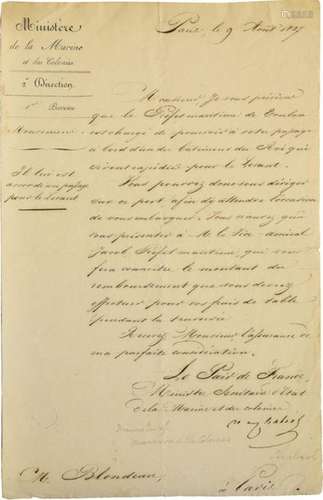 Ministère
de la Marine
et des Colonies
2e Direction
1er Bureau
Monsieur
Il lui est
accordé un passage
pour le Levant
Paris, le 9 Août 1827
Monsieur, Je vous préviens
que le Préfet maritime de Toulon
est chargé de pourvoir à votre passage
à bord d'un des bâtimens du Roi qui
seront expédiés pour le Levant.
Vous pouvez donc vous diriger
sur ce port, afin d'y attendre l'occasion
de vous embarquer. Vous n'aurez qu'à
vous présenter à M. le Vice-amiral
Jacob Préfet maritime, qui vous
fera connaître le montant du
remboursement que vous devrez
effectuer pour vos frais de table
pendant la traversée
Recevez, Monsieur l'assurance de
ma parfaite considération.
Le Pair de France,
Ministre Secrétaire d'Etat
de la Marine et des colonies
Chabrol
M. Blondeau,
à Paris